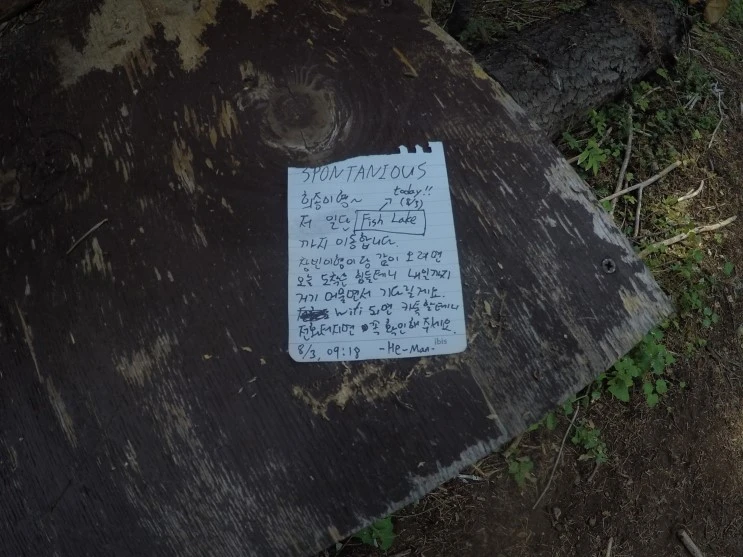 SPONTANIOUS
희종이형~ today!!
(8/3)
저 일단 Fish Lake
까지 이동합니다.
창빈이형이랑 같이 오려면
오늘 도착은 힘들테니 내일까지
거기 머물면서 기다릴게요.
wifi 되면 카톡할테니
전화터지면 꼭 확인해주세요.
8/3, 09:18 -He-Man-
ibis